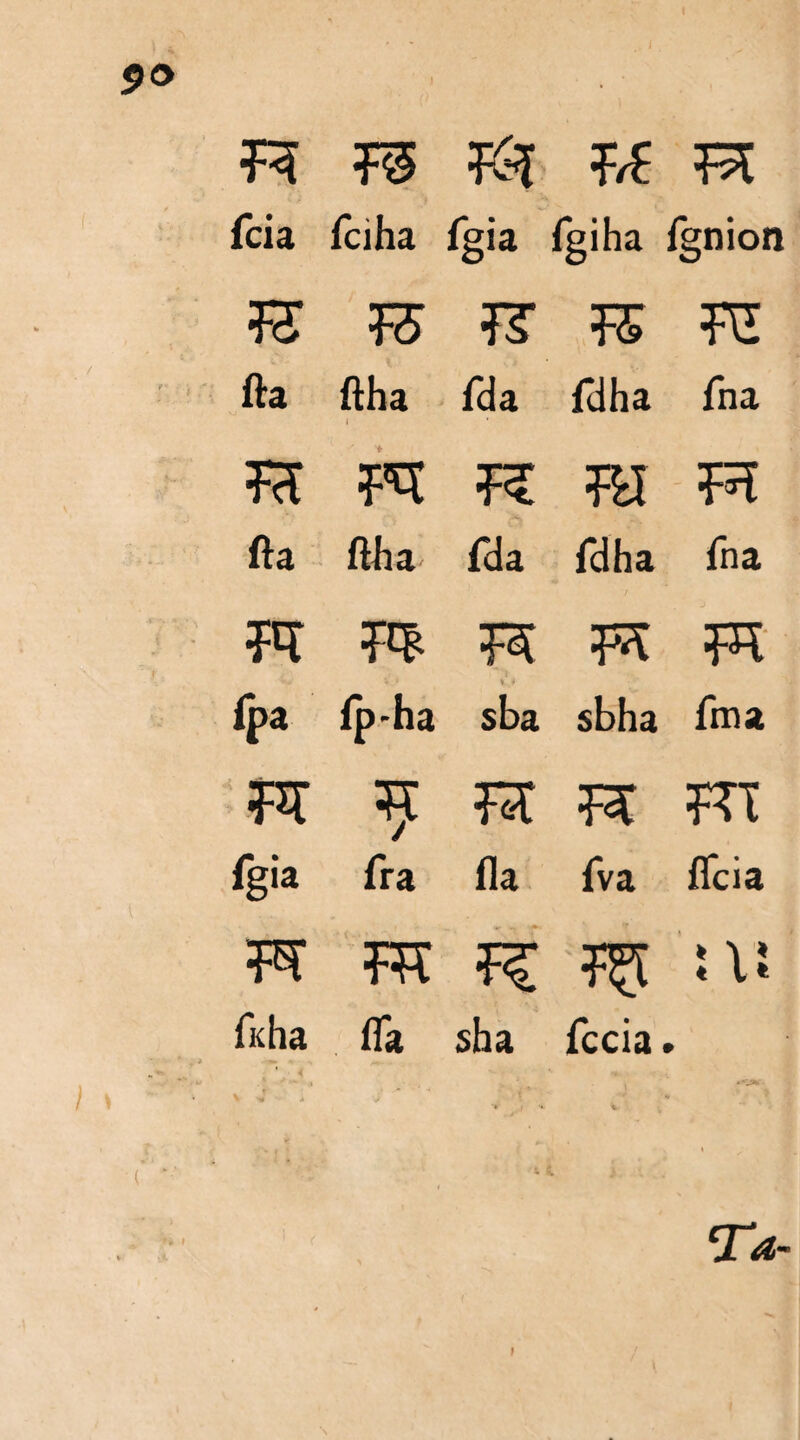 90
स्च स्छ स्ज स्झ स्ञ
ſcia ſciha ſgia ſgiha ſgnion
स्ट स्ठ स्ड स्ढ स्ण
ſta ſtha ſda ſdha ſna
स्त स्थ स्द स्ध स्न
ſta ſtha ſda ſdha ſna
स्प स्फ स्ब स्भ स्म
ſpa ſp-ha sba sbha ſma
स्य स्र स्ल स्व स्श
ſgia ſra ſla ſva ſſcia
स्ष स्स स्ह स्क्ष :।:
ſкha ſſa sha ſccia.
Ta-